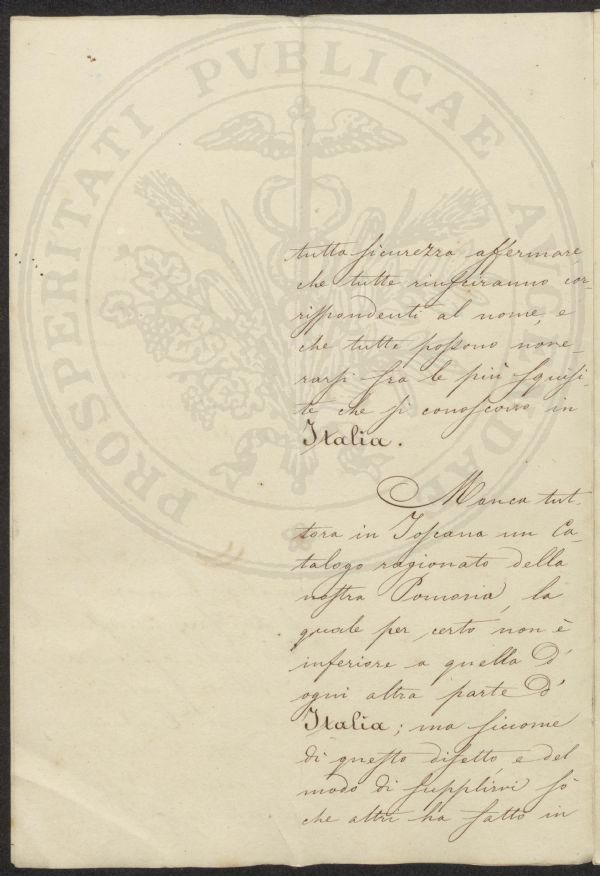 PROSPERITATI PVBLICAE AVGENDAE
tutta sicurezza affermare
che tutte riusciranno cor-
rispondenti al nome, e
che tutte possono nove-
rarsi fra le più squisi-
te che si conoscono in
Italia.
Manca tut-
tora in Toscana un Ca-
talogo ragionato della
nostra Pomona, la
quale per certo non è
inferiore a quella d'
ogni altra parte d'
Italia; ma siccome
di questo difetto e del
modo di supplirvi sò
che altri ha fatto in